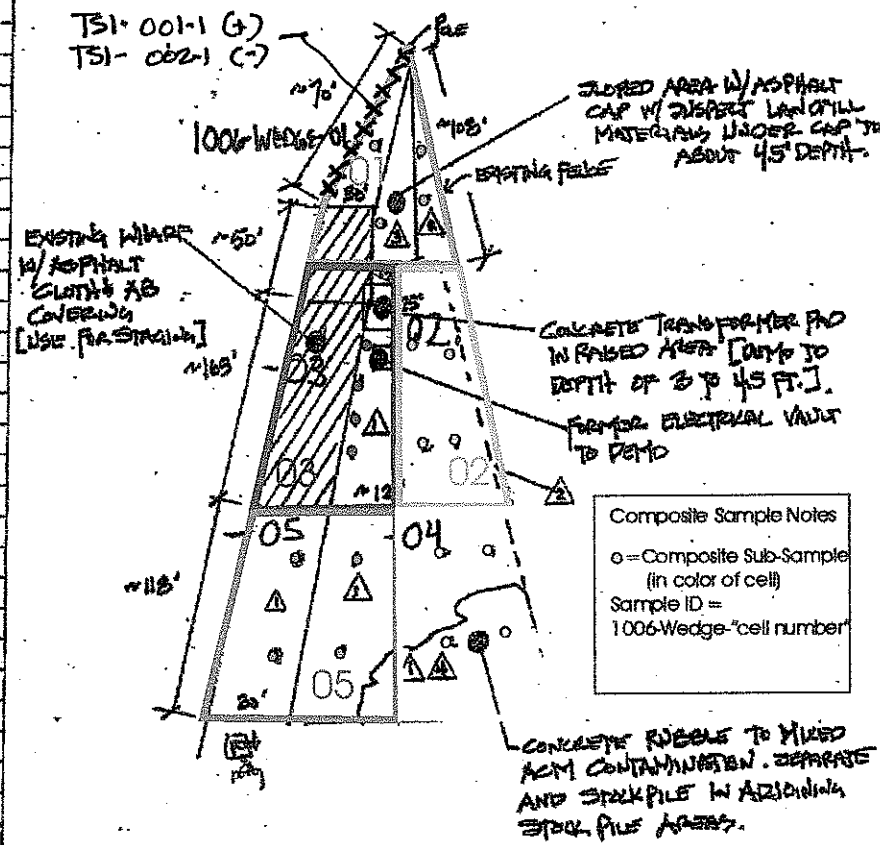 TSI-001-1 (+)
TSI-002-1 (-)
~70'
1006-WEDGE-01
01
30'
~108'
SLOPED AREA W/ASPHALT
CAP W/ SUSPECT LANDFILL
MATERIALS UNDER CAP TO
ABOUT 4.5' DEPTH.
EXISTING FENCE
3
EXISTING WHARF
W/ ASPHALT
CLOTH & AB
COVERING
[USE FOR STAGING]
~50'
~165'
25'
02
03
CONCRETE TRANSFORMER PAD
IN RAISED AREA [DEMO TO
DEPTH OF 3 TO 4.5 FT.].
FORMER ELECTRICAL VAULT
TO DEMO
1
03
02
~12
2
05
04
~118'
1
1
05
1
4
30'
Composite Sample Notes
o=Composite Sub-Sample
(in color of cell)
Sample ID =
1006-Wedge-"cell number"
CONCRETE RUBBLE TO MIXED
ACM CONTAMINATION. SEPARATE
AND STOCKPILE IN ADJOINING
STOCK PILE AREAS.